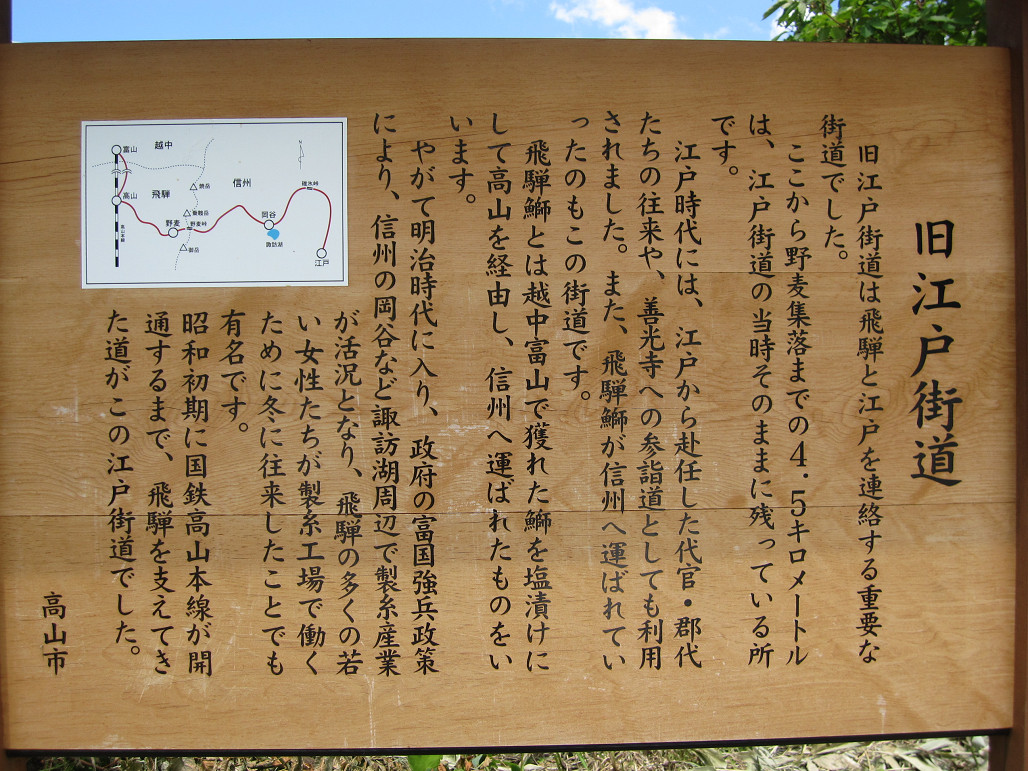 旧江戸街道
旧江戸街道は飛騨と江戸を連絡する重要な
街道でした。
ここから野麦集落までの4.5キロメートル
は、江戸街道の当時そのままに残っている所
です。
江戸時代には、江戸から赴任した代官・郡代
たちの往来や、善光寺への参詣道としても利用
されました。また、飛騨鰤が信州へ運ばれてい
ったのもこの街道です。
飛騨鰤とは越中富山で獲れた鰤を塩漬けに
して高山を経由し、信州へ運ばれたものをい
います。
やがて明治時代に入り、政府の富国強兵政策
により、信州の岡谷など諏訪湖周辺で製糸産業
が活況となり、飛騨の多くの若
い女性たちが製糸工場で働く
ために冬に往来したことでも
有名です。
昭和初期に国鉄高山本線が開
通するまで、飛騨を支えてき
た道がこの江戸街道でした。
高山市
越中
富山
飛騨
信州
高山
高山本線
野麦
野麦峠
乗鞍岳
御岳
岡谷
諏訪湖
碓氷峠
江戸
N